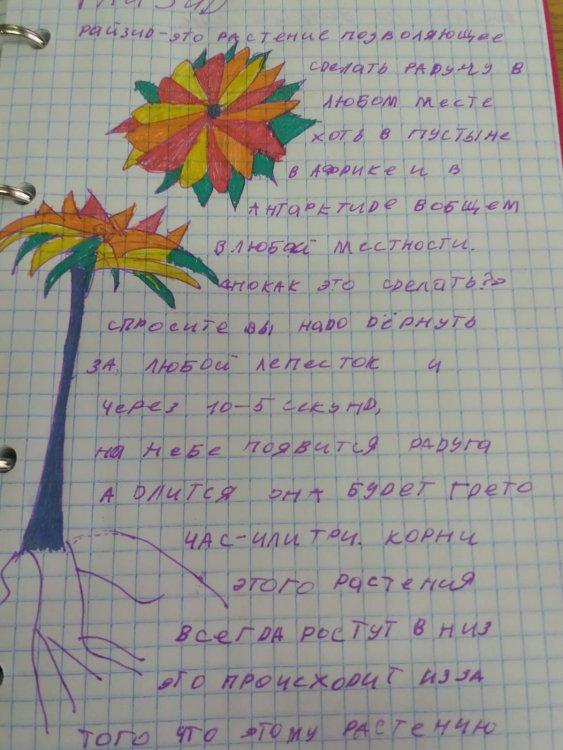 райзид-это растение позволяющее
сделать радугу в
любом месте
хоть в пустыне
в африке и в
антарктиде вобщем
в любой местности.
но как это сделать?
спросите вы надо дёрнуть
за любой лепесток и
через 10-5 секунд,
на небе появится радуга
а длится она будет грето
час-или три. корни
этого растения
всегда ростут в низ
это происходит изза
того что этому растению